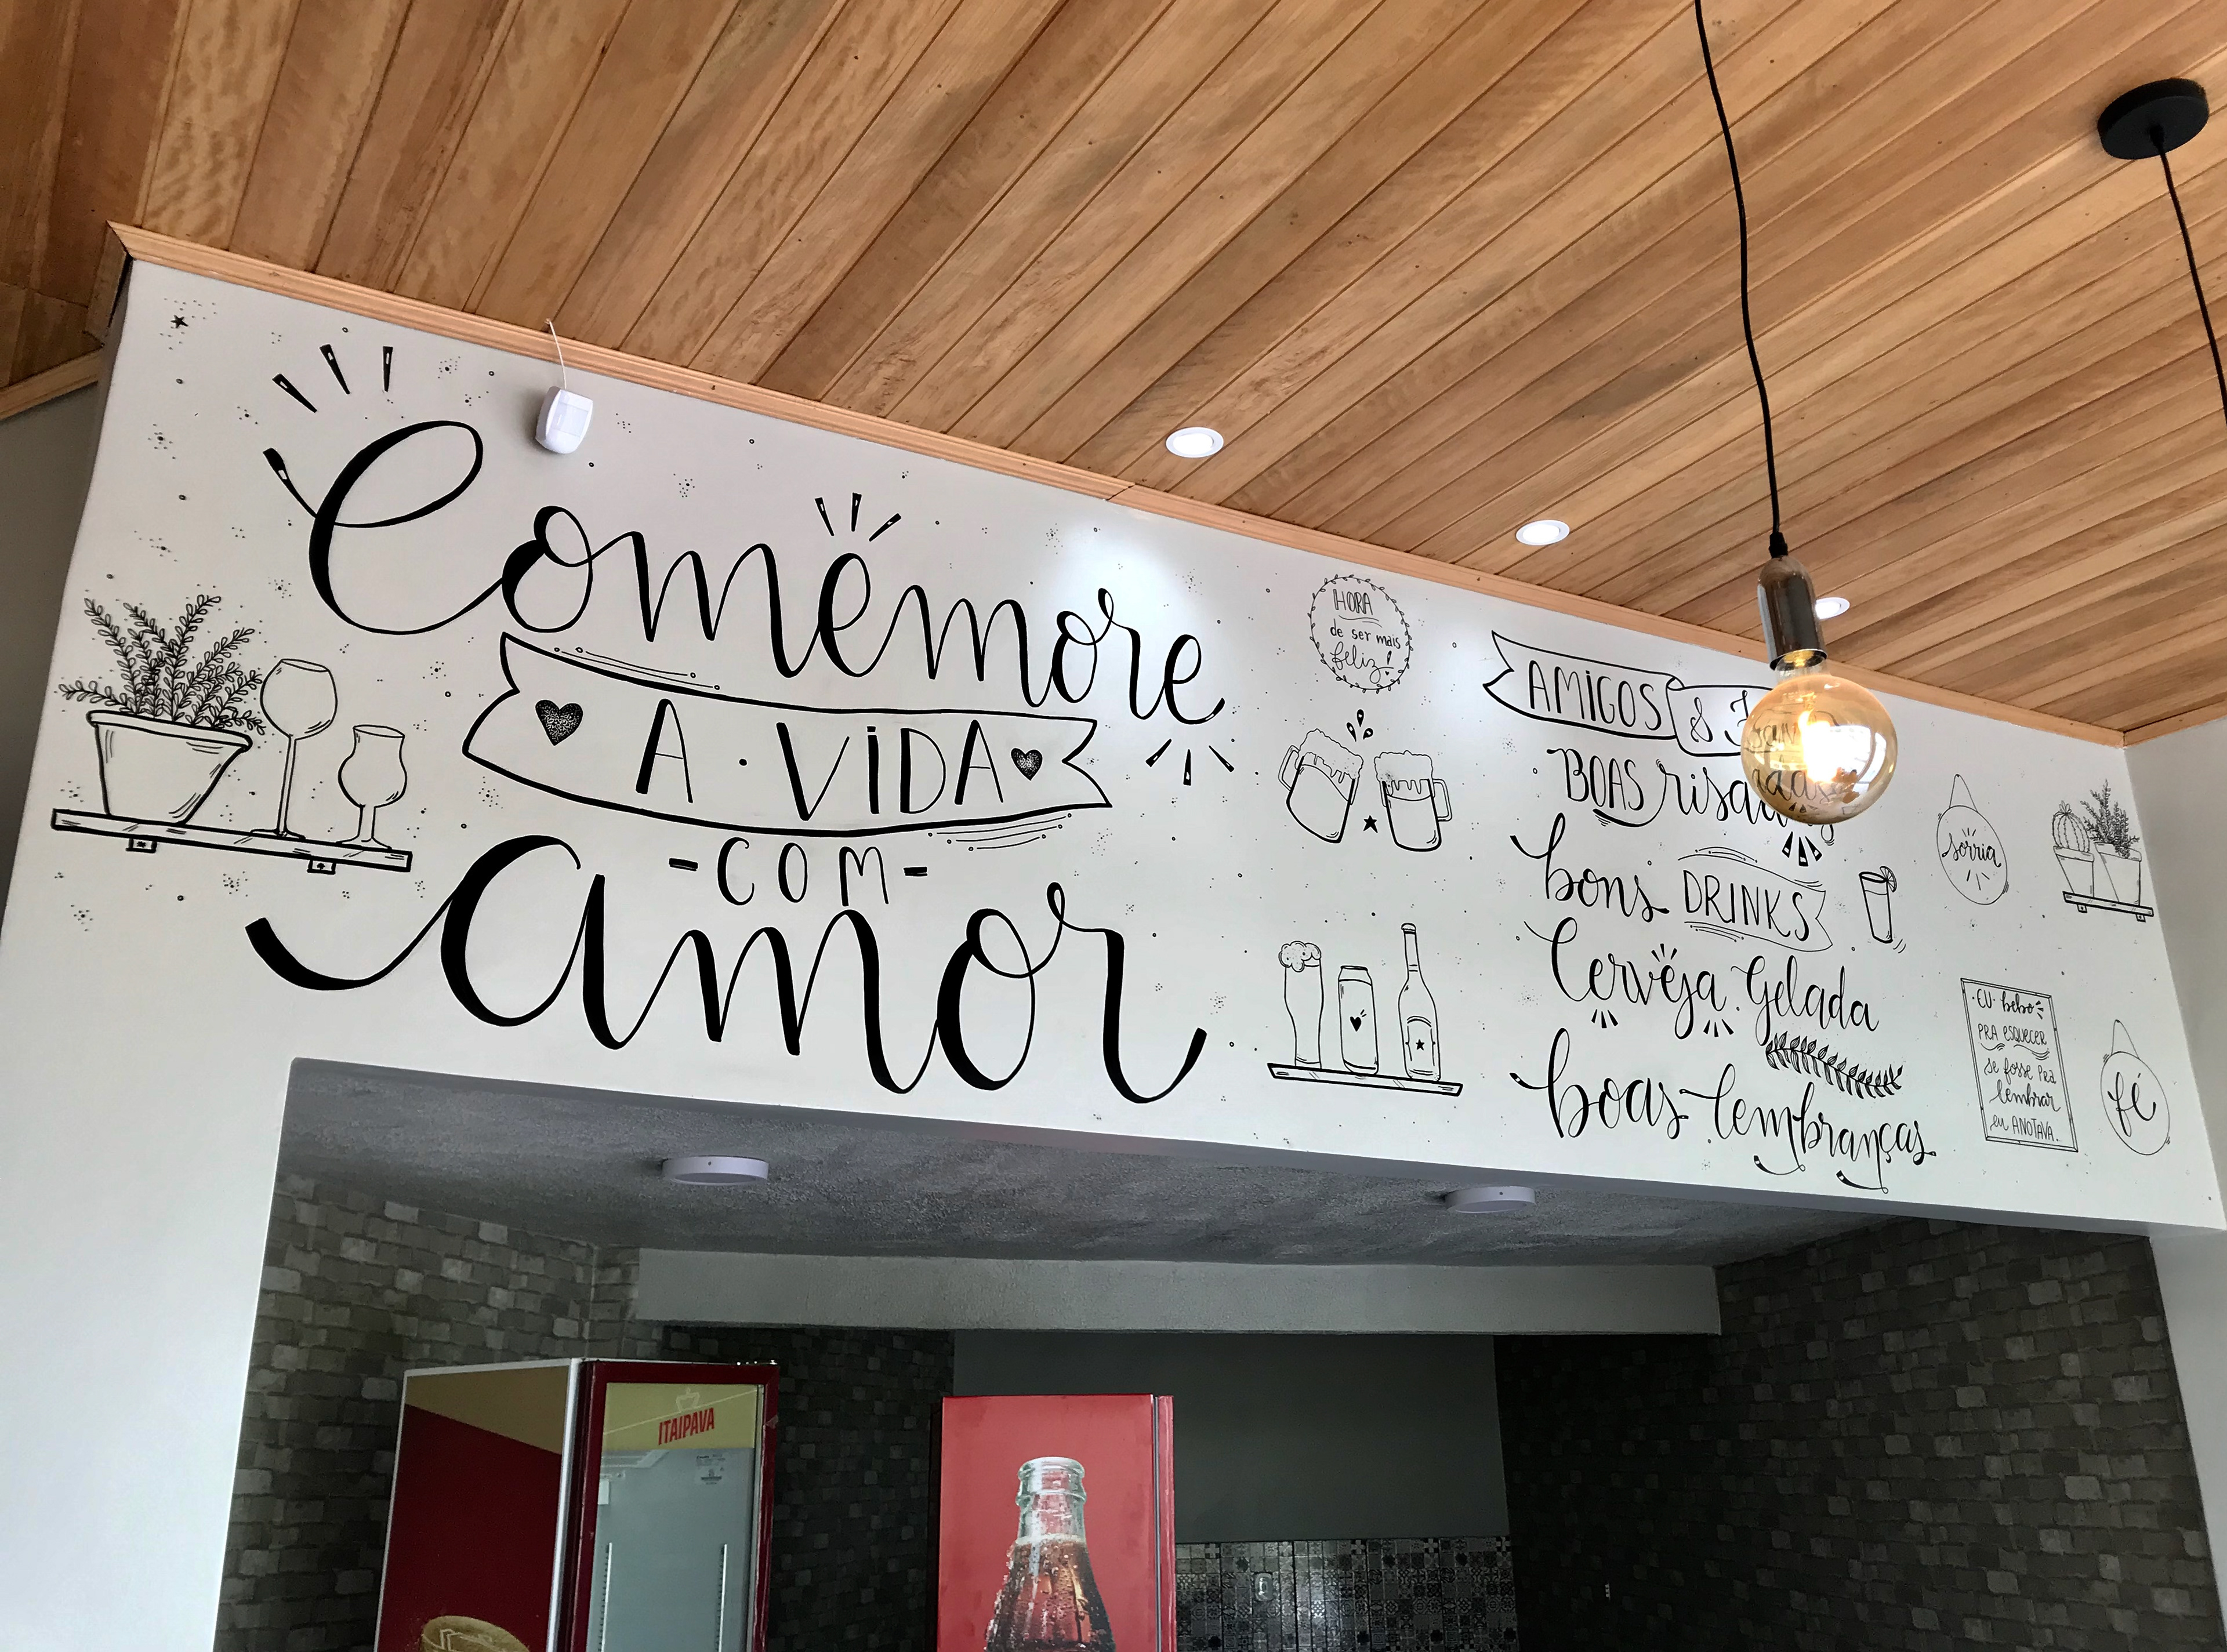 Comemore
A · VIDA
- COM -
amor
HORA
de ser mais
feliz!
AMIGOS &
BOAS risadas
bons DRINKS
Cerveja Gelada
boas lembranças
sorria
EU bebo
PRA ESQUECER
se fosse PRA
lembrar
eu ANOTAVA.
fé
ITAIPAVA